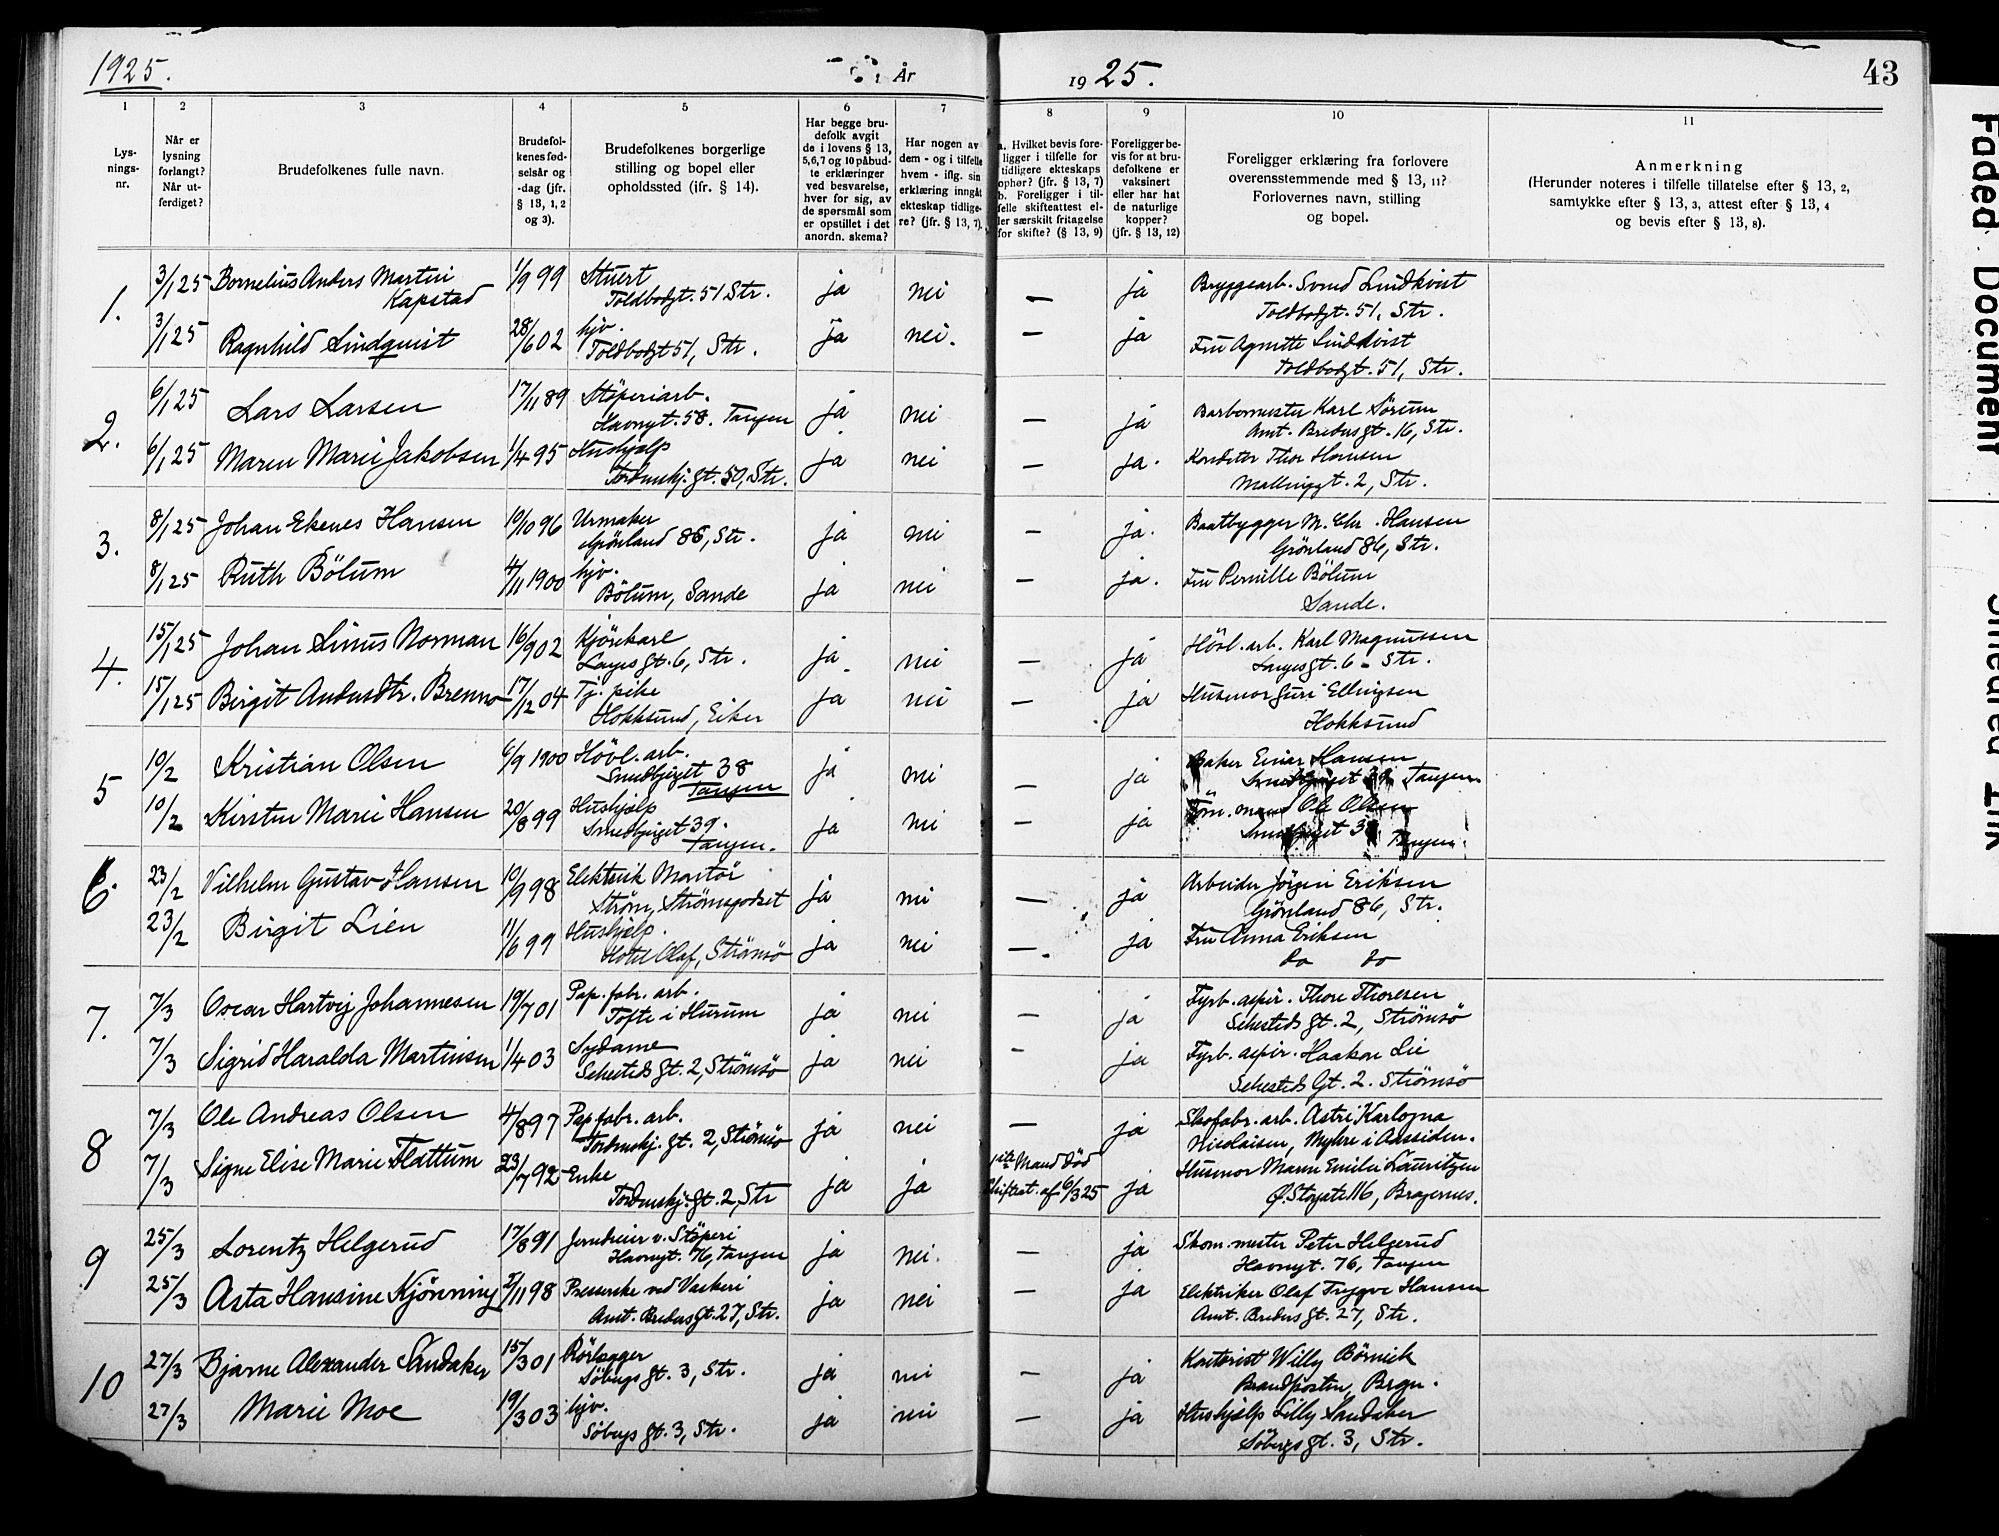 1925.
År
1925.
43
1
2
3
4
5
6
7
8
9
10
11
Lys-
nings-
nr.
Når er
lysning
forlangt?
Når ut-
ferdiget?
Brudefolkenes fulle navn.
Brudefol-
kenes fød-
selsår og
-dag (jfr.
§ 13, 1, 2
og 3).
Brudefolkenes borgerlige
stilling og bopel eller
opholdssted (ifr. § 14).
Har begge bru-
defolk avgit
de i lovens § 13,
5,6,7 og 10 påbud-
te erklæringer
ved besvarelse,
hver for sig, av
de spørsmål som
er opstillet i det
anordn. skema?
Har nogen av
dem - og i tilfelle
hvem - iflg. sin
erklæring inngått
ekteskap tidlige-
re? (jfr. § 13, 7).
a. Hvilket bevis fore-
ligger i tilfelle for
tidligere ekteskaps
ophør? (jfr. § 13, 7)
b. Foreligger i til-
felle skifteattest el-
ler særskilt fritagelse
for skifte? (§ 13, 9)
Foreligger be-
vis for at bru-
defolkene er
vaksinert
eller har hat
de naturlige
kopper?
(jfr. § 13, 12)
Foreligger erklæring fra forlovere
overensstemmende med § 13, 11?
Forlovernes navn, stilling
og bopel.
Anmerkning
(Herunder noteres i tilfelle tillatelse efter § 13, 2,
samtykke efter § 13, 3, attest efter § 13, 4
og bevis efter § 13, 8).
1.
3/1 25 Bornelius Anders Martin 1/9 99 Stuert ja nei — ja Bryggearb. Svend Lindkvist
Kapstad Toldbodgt. 51 Str. Toldbodgt. 51, Str.
3/1 25 Ragnhild Lindquist 28/6 02 hjv. ja nei. — ja Fru Agnette Lindkvist
Toldbodgt 51, Str. Toldbodgt. 51, Str.
2.
6/1 25 Lars Larsen 17/11 89 Støperiarb. ja nei — ja Barbermester Karl Sörum
Havngt. 58. Tangen Amt. Bredersgt. 16, Str.
6/1 25 Maren Marie Jakobsen 1/4 95 Hushjælp ja nei — ja. Konditor Thor Hansen
Tordenskj. gt. 50, Str. Mallinggt. 2, Str.
3.
8/1 25 Johan Ekenes Hansen 10/10 96 Urmaker ja nei — ja. Baatbygger M. Chr. Hansen
Grönland 86, Str. Grönland 86, Str.
8/1 25 Ruth Bölum 4/11 1900 hjv. ja nei — ja. Fru Pernille Bölum
Bölum, Sande Sande.
4.
15/1 25 Johan Linus Norman 16/9 02 Kjörekarl ja nei — ja Hövl. arb. Karl Magnussen
Langes gt. 6, Str. Langes gt. 6 - Str.
15/1 25 Birgit Andersdtr. Brenno 17/12 04 Tj. pike ja nei — ja Husmor Guri Ellingsen
Hokksund, Eiker Hokksund
5
10/2 Kristian Olsen 6/9 1900 Hövl. arb. ja nei — ja Baker Einar Hansen
Smedbjerget 38 Tangen Smedbjerget 39 Tangen
10/2 Kirsten Marie Hansen 20/8 99 Hushjælp ja nei — ja Töm. mand Ole Olsen
Smedbjerget 39. Tangen. Tangen.
6.
23/2 Vilhelm Gustav Hansen 10/9 98 Elektrisk Montör ja nei — ja Arbeider Jörgen Eriksen
Ström, Strömsgodset Grönland 86, Str.
23/2 Birgit Lien 11/6 99 Hushjælp. ja nei — ja Fru Anna Eriksen
Hotel Olaf, Strömsö do do
7.
7/3 Oscar Hartvig Johannesen 19/7 01 Pap. fabr. arb. ja nei — ja Fyrb. aspir. Thore Thoresen
Tofte i Hurum Sehesteds gt. 2, Strömsö
7/3 Sigrid Haralda Martinsen 1/4 03 Sydame ja nei — ja Fyrb. aspir. Haakon Lie
Sehesteds gt. 2, Strömsö Sehesteds Gt. 2. Strömsö
8
7/3 Ole Andreas Olsen 4/8 97 Pap. fabr. arb. ja nei — ja Skofabr. arb. Astri Karlogna
Tordenskj. gt. 2, Strömsö Nicolaisen, Myhre i Aassiden.
7/3 Signe Elise Marie Flattum 23/7 92 Enke ja ja 1ste Mand död ja Husmor Maren Emilie Lauritzen
Tordenskj. Gt. 2, Str Skifteat. af 6/3 25 Ø. Storgate 116, Bragernes.
9
25/3 Lorentz Helgerud 17/8 91 Jerndreier v. Støperi ja nei. — ja Skom. mester Peter Helgerud
Havngt. 76, Tangen Havngt. 76, Tangen
25/3 Asta Hansine Kjönning 2/11 98 Presserske ved Vaskeri ja nei — ja Elektriker Olaf Tryggve Hansen
Amt. Breders gt. 27, Str. Amt. Breders gt. 27, Str.
10
27/3 Bjarne Alexander Sandaker 15/3 01 Rörlægger ja nei — ja Kontorist Willy Börnick
Söbergs gt. 3, Str. Brandposten, Brgn.
27/3 Marie Moe 19/3 03 hjv. ja nei — ja Hushjælp Lilly Sandaker
Söbergs gt. 3, Str. Söbergs gt. 3, Str.
Faded Document
Smeared Ink